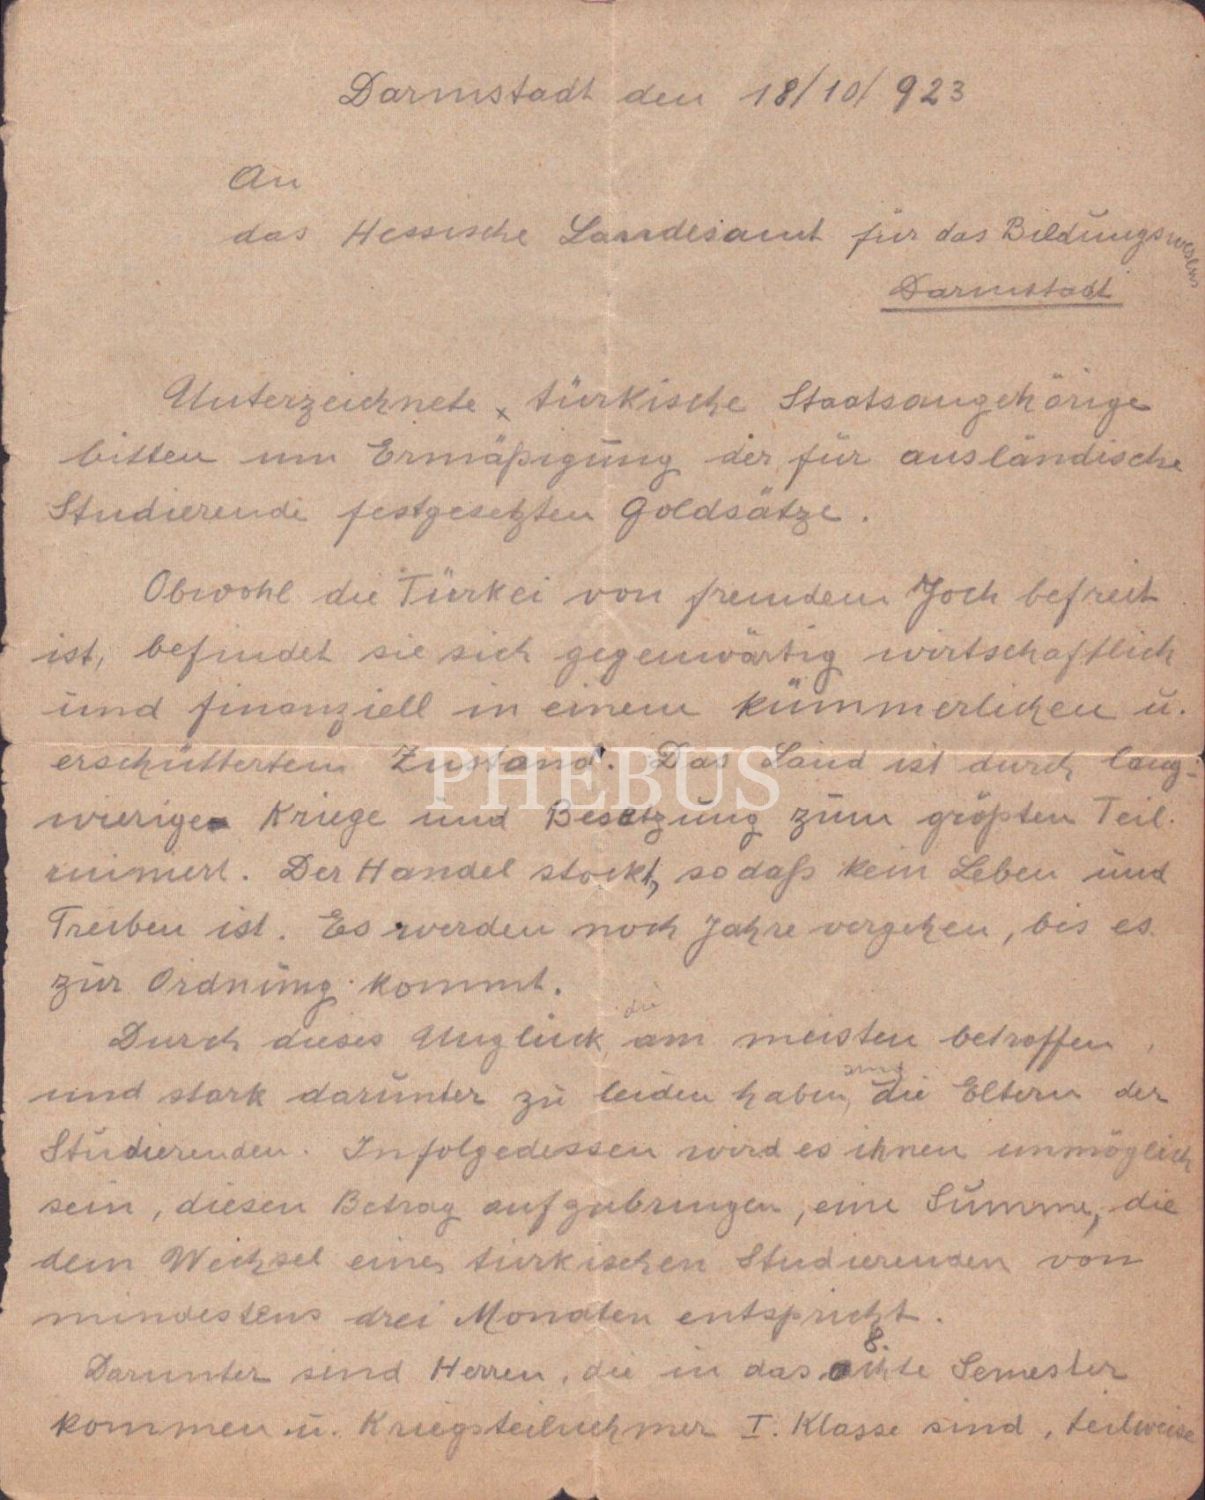 Darmstadt den 18/10/923
An
das Hessische Landesamt für das Bildungswesen
Darmstadt
Unterzeichnete x türkische Staatsangehörige
bitten um Ermäßigung der für ausländische
Studierende festgesetzten Goldsätze.
Obwohl die Türkei von fremdem Joch befreit
ist, befindet sie sich gegenwärtig wirtschaftlich
und finanziell in einem kümmerlichen u.
erschütterten Zustand. Das Land ist durch lang-
wierige Kriege und Besetzung zum größten Teil
ruiniert. Der Handel stockt, sodaß kein Leben und
Treiben ist. Es werden noch Jahre vergehen, bis es
zur Ordnung kommt.
die
Durch dieses Unglück am meisten betroffen,
sind
und stark darunter zu leiden haben, die Eltern der
Studierenden. Infolgedessen wird es ihnen unmöglich
sein, diesen Betrag aufzubringen, eine Summe, die
dem Wechsel eines türkischen Studierenden von
mindestens drei Monaten entspricht.
8.
Darunter sind Herren, die in das achte Semester
kommen u. Kriegsteilnehmer I. Klasse sind, teilweise
PHEBUS